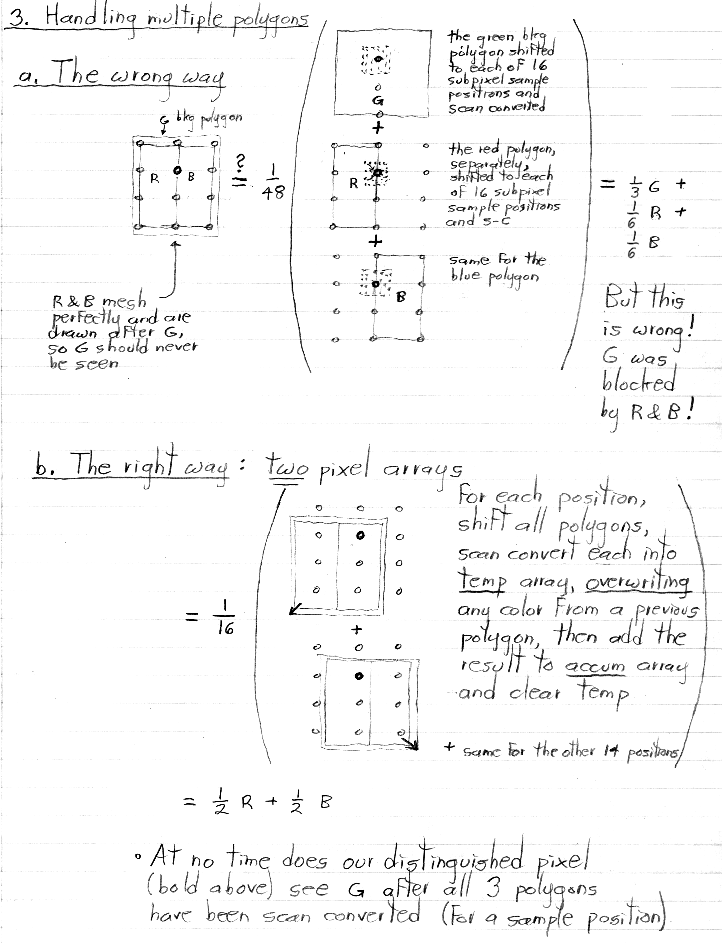 3. Handling multiple polygons
a. The wrong way
G bkg polygon
R B
?
= 1/48
the green bkg
polygon shifted
to each of 16
subpixel sample
positions and
scan converted
G
+
the red polygon,
separately,
shifted to each
of 16 subpixel
sample positions
and s-c
R
+
same for the
blue polygon
B
= 1/3 G +
1/6 R +
1/6 B
R & B mesh
perfectly and are
drawn after G,
so G should never
be seen
But this
is wrong!
G was
blocked
by R & B!
b. The right way: two pixel arrays
= 1/16
+
For each position,
shift all polygons,
scan convert each into
temp array, overwriting
any color from a previous
polygon, then add the
result to accum array
and clear temp
+ same for the other 14 positions
= 1/2 R + 1/2 B
• At no time does our distinguished pixel
(bold above) see G after all 3 polygons
have been scan converted (for a sample position)